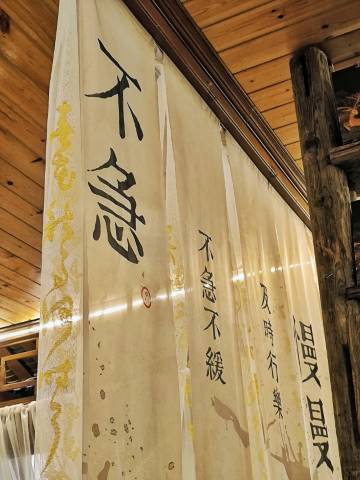 不急
不急不緩
及時行樂
慢慢